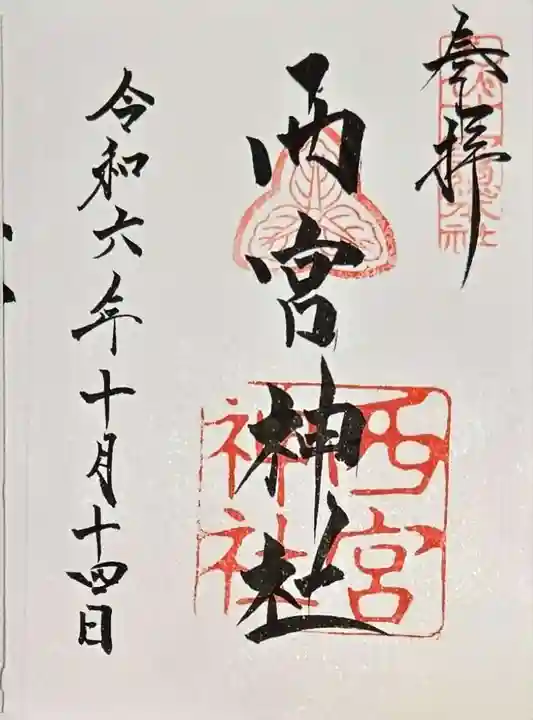 奉拝
西宮神社
西宮
神社
令和六年十月十四日